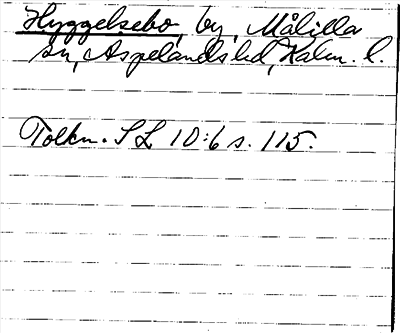 Hyggelsebo, by, Målilla
sn, Aspelands hd, Kalm. l.
Tolkn. SL 10:6 s. 115.